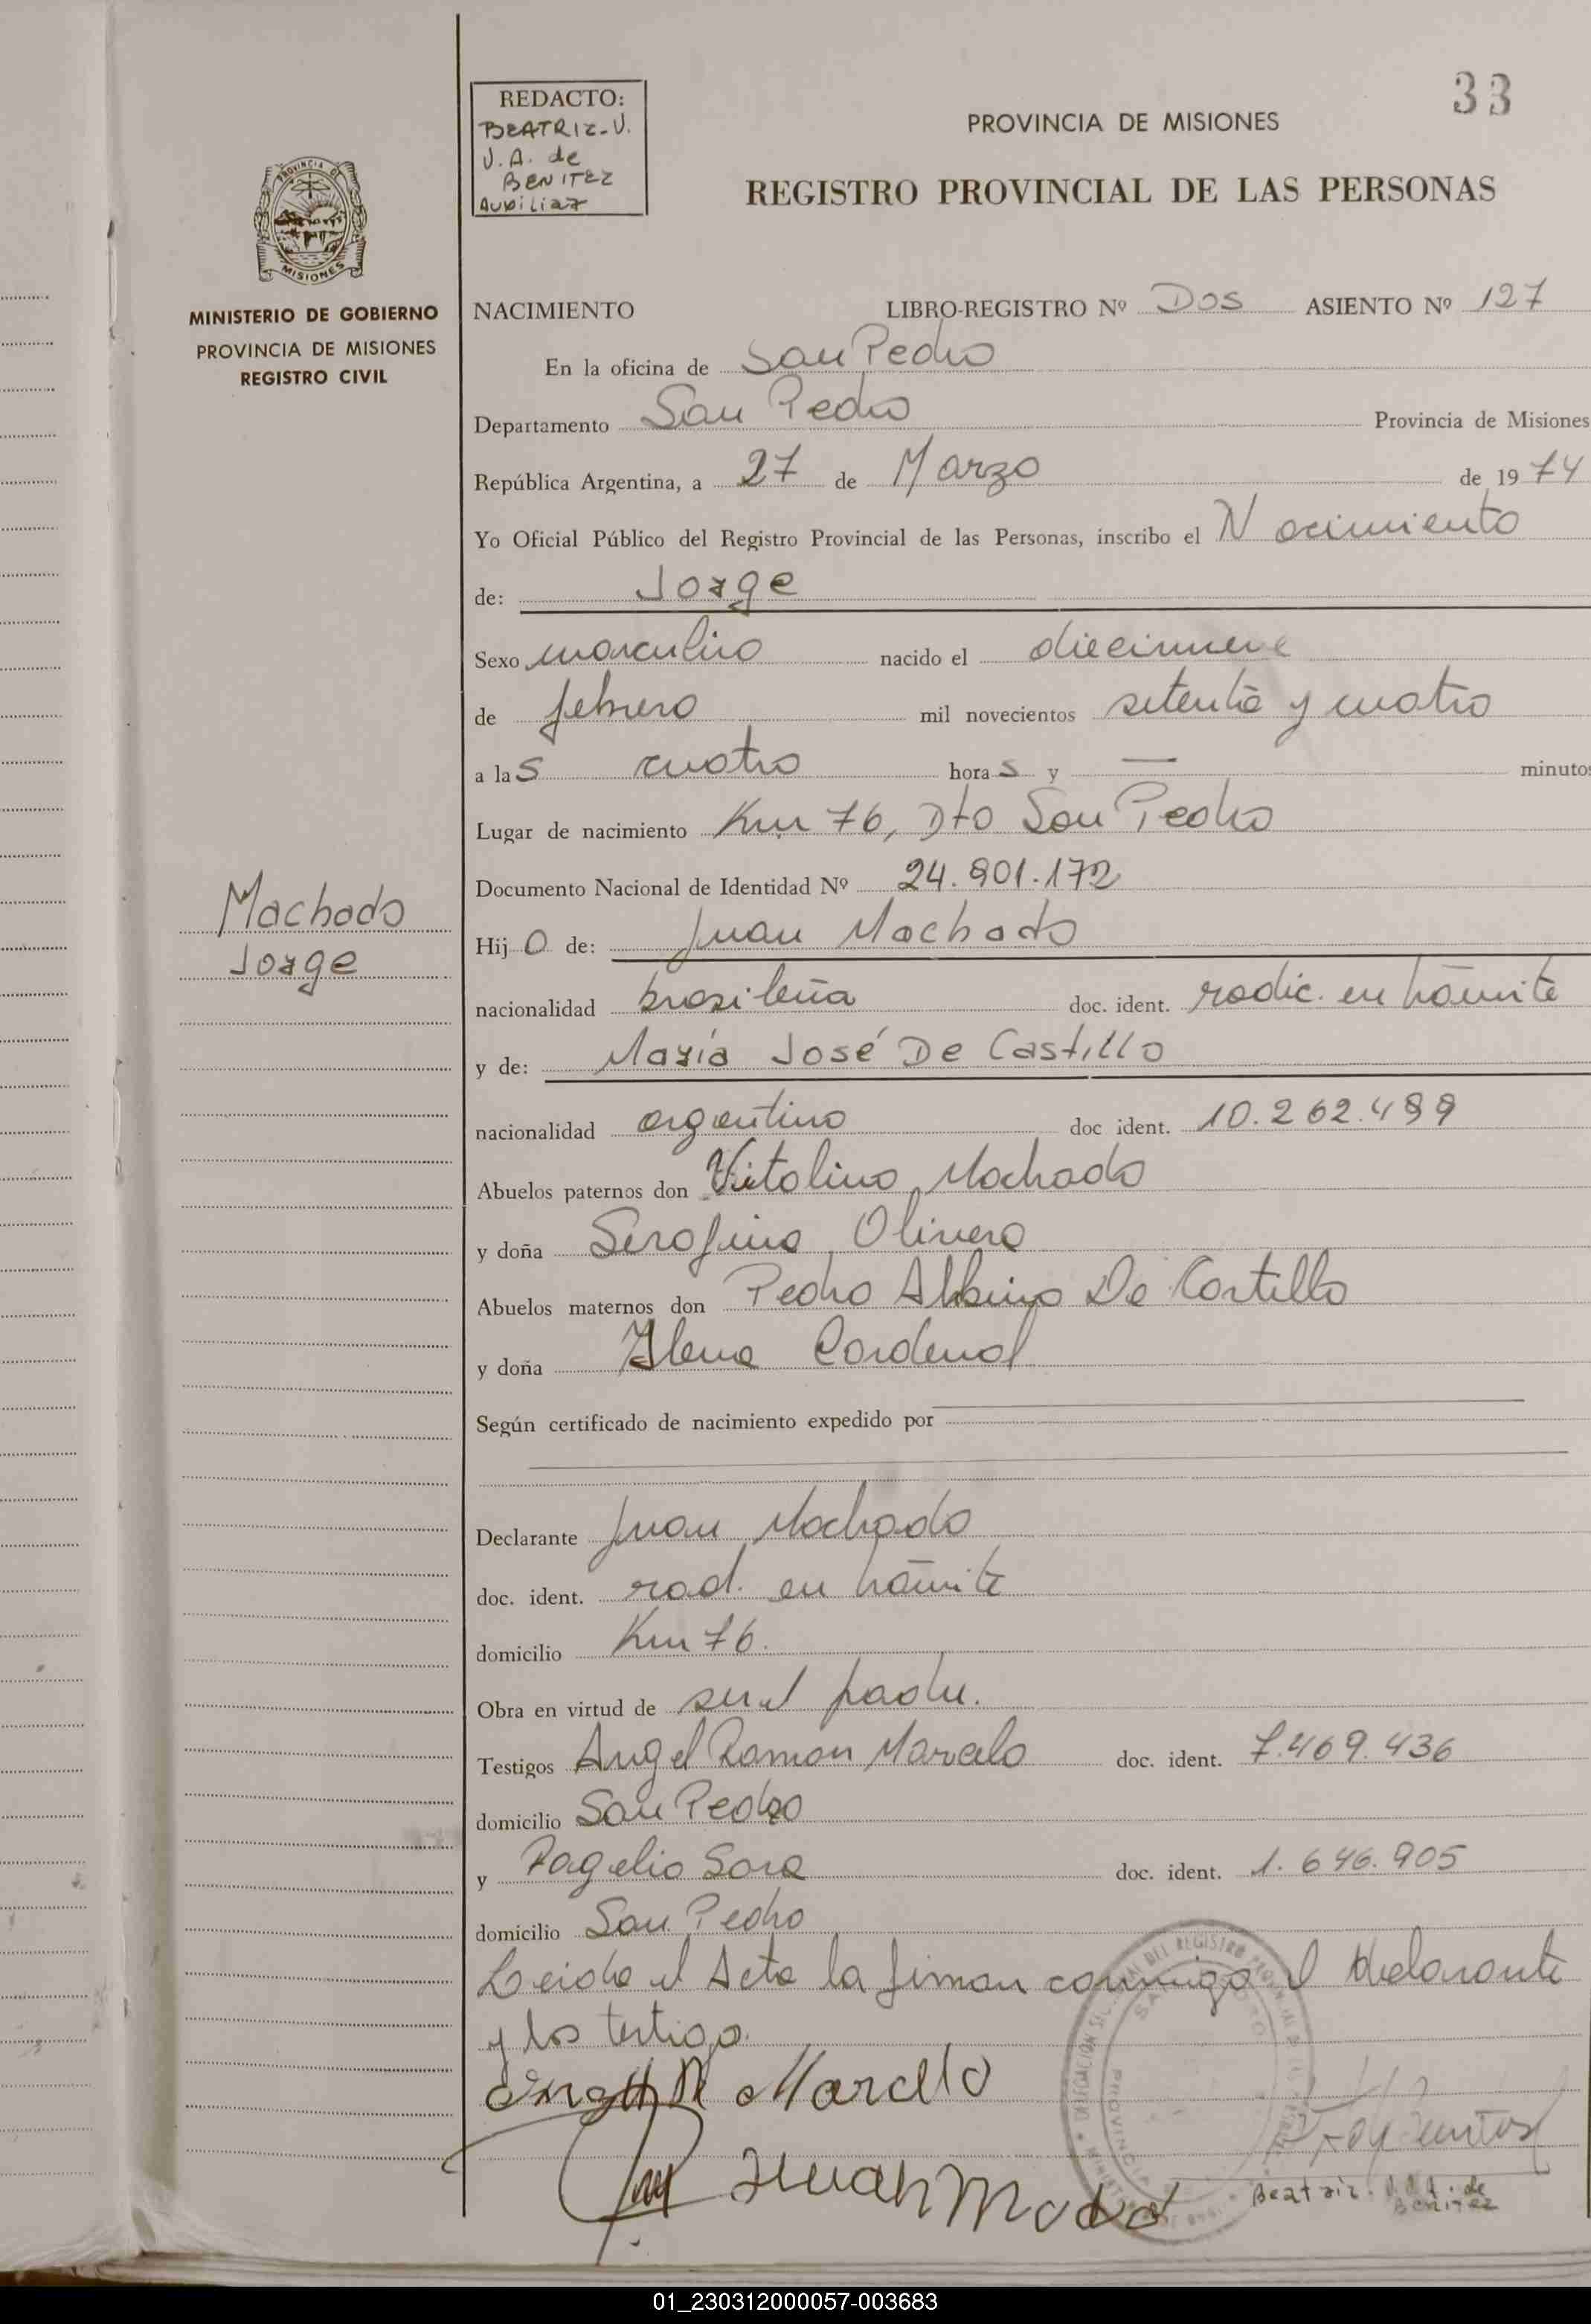 33
REDACTO:
BEATRIZ-V.
V.A. de
BENITEZ
Auxiliar
PROVINCIA DE MISIONES
REGISTRO PROVINCIAL DE LAS PERSONAS
PROVINCIA DE
MISIONES
MINISTERIO DE GOBIERNO
PROVINCIA DE MISIONES
REGISTRO CIVIL
NACIMIENTO LIBRO-REGISTRO Nº Dos ASIENTO Nº 127
En la oficina de San Pedro
Departamento San Pedro Provincia de Misiones
República Argentina, a 27 de Marzo de 1974
Yo Oficial Público del Registro Provincial de las Personas, inscribo el Nacimiento
de: Jorge
Sexo masculino nacido el diecinueve
de febrero mil novecientos setenta y cuatro
a las cuatro horas y — minutos
Lugar de nacimiento Km 76, Dto San Pedro
Documento Nacional de Identidad Nº 24.901.172
Machado
Jorge
Hijo de: Juan Machado
nacionalidad brasileña doc. ident. radic. en trámite
y de: María José De Castillo
nacionalidad argentina doc ident. 10.262.499
Abuelos paternos don Vitalino Machado
y doña Serafina Olivera
Abuelos maternos don Pedro Albino De Castillo
y doña Elena Cardenal
Según certificado de nacimiento expedido por
Declarante Juan Machado
doc. ident. rad. en trámite
domicilio Km 76.
Obra en virtud de ser el padre.
Testigos Angel Ramon Marcelo doc. ident. 7.469.436
domicilio San Pedro
y Rogelio Sosa doc. ident. 1.646.905
domicilio San Pedro
Leida el Acta la firman conmigo el declarante
y los testigo.
Marcelo
Juan
Beatriz V.A. de
Benitez
01_230312000057-003683